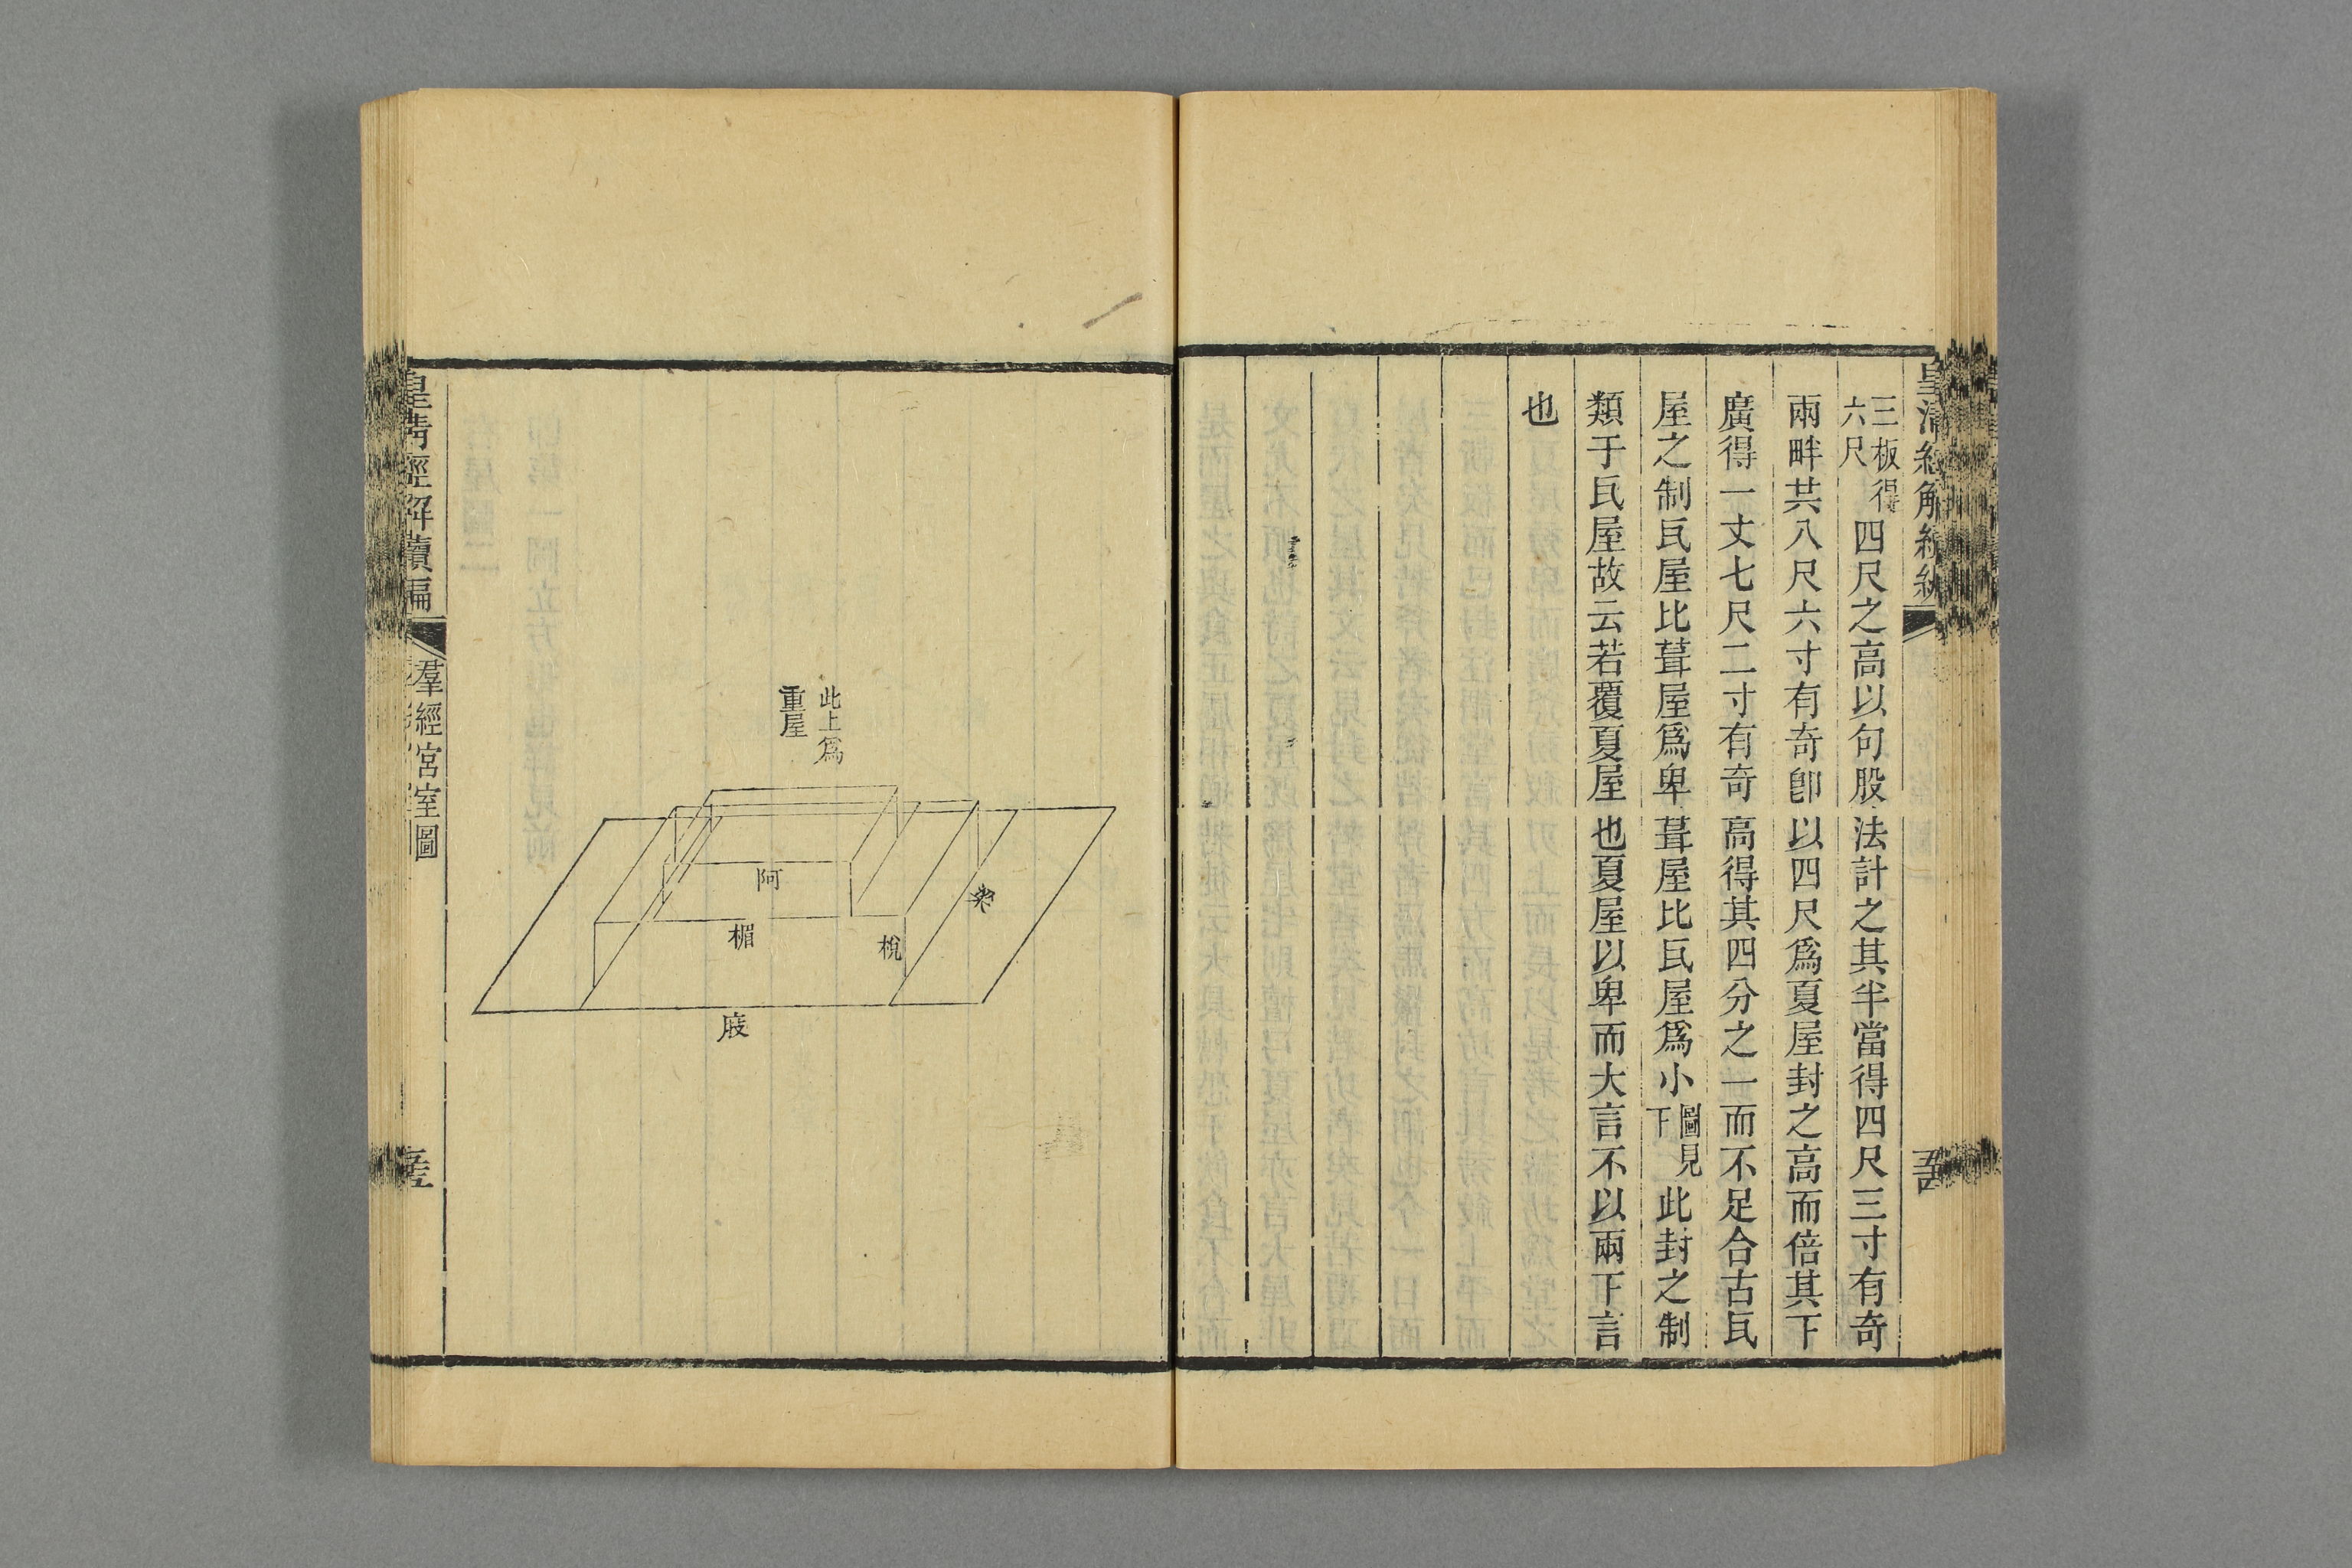 三板得
六尺
四尺之高以句股法計之其半當得四尺三寸有奇
兩畔共八尺六寸有奇卽以四尺爲夏屋封之高而倍其下
廣得一丈七尺二寸有奇高得其四分之一而不足合古瓦
屋之制瓦屋比葺屋爲卑葺屋比瓦屋爲小
圖見
下
此封之制
類于瓦屋故云若覆夏屋也夏屋以卑而大言不以兩下言
也
此上爲
重屋
阿
楣
梲
梁
庪
皇清經解續編
羣經宮室圖